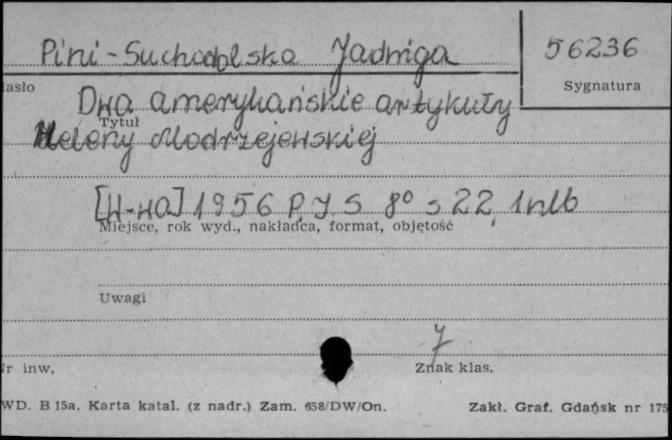 Pini-Suchodolska Jadwiga
56236
Hasło
Sygnatura
Dwa amerykańskie artykuły
Tytuł
Heleny Modrzejewskiej
[W-wa] 1956 P.I.S 8° s 22, 1nlb
Miejsce, rok wyd., nakładca, format, objętość
Uwagi
7
Nr inw.
Znak klas.
WD. B 15a. Karta katal. (z nadr.) Zam. 658/DW/On.
Zakł. Graf. Gdańsk nr 175